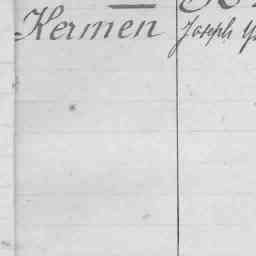 Kermen Joseph